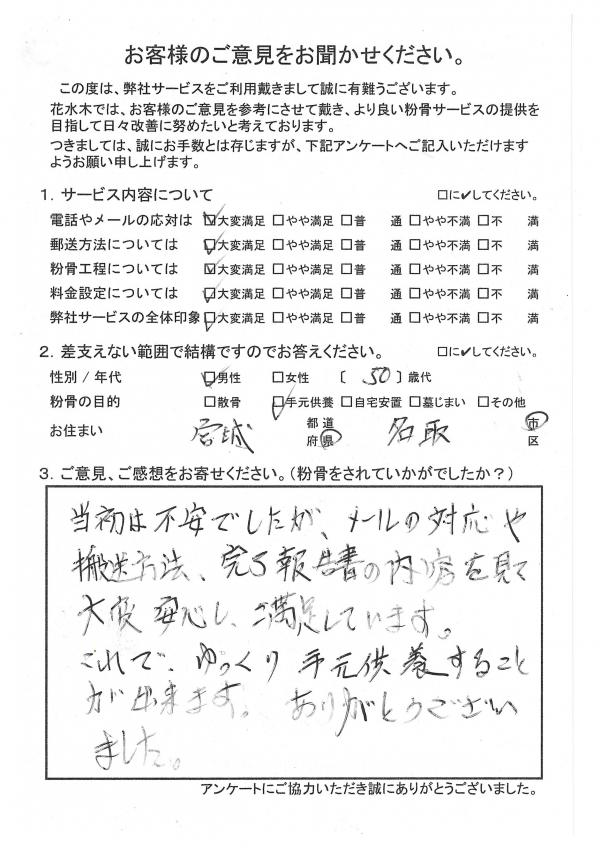 お客様のご意見をお聞かせください。
この度は、弊社サービスをご利用戴きまして誠に有難うございます。
花水木では、お客様のご意見を参考にさせて戴き、より良い粉骨サービスの提供を
目指して日々改善に努めたいと考えております。
つきましては、誠にお手数とは存じますが、下記アンケートへご記入いただけます
ようお願い申し上げます。
1. サービス内容について □に✔してください。
電話やメールの応対は ☑大変満足 □やや満足 □普 通 □やや不満 □不 満
郵送方法については ☑大変満足 □やや満足 □普 通 □やや不満 □不 満
粉骨工程については ☑大変満足 □やや満足 □普 通 □やや不満 □不 満
料金設定については ☑大変満足 □やや満足 □普 通 □やや不満 □不 満
弊社サービスの全体印象 ☑大変満足 □やや満足 □普 通 □やや不満 □不 満
2. 差支えない範囲で結構ですのでお答えください。 □に✔してください。
性別 / 年代 ☑男性 □女性 〔 50 〕歳代
粉骨の目的 □散骨 ☑手元供養 □自宅安置 □墓じまい □その他
お住まい 宮城 都道府県 名取 市区
3. ご意見、ご感想をお寄せください。(粉骨をされていかがでしたか?)
当初は不安でしたが、メールの対応や
搬送方法、完了報告書の内容を見て
大変安心し、ご満足しています。
これで、ゆっくり手元供養すること
が出来ます。ありがとうござい
ました。
アンケートにご協力いただき誠にありがとうございました。